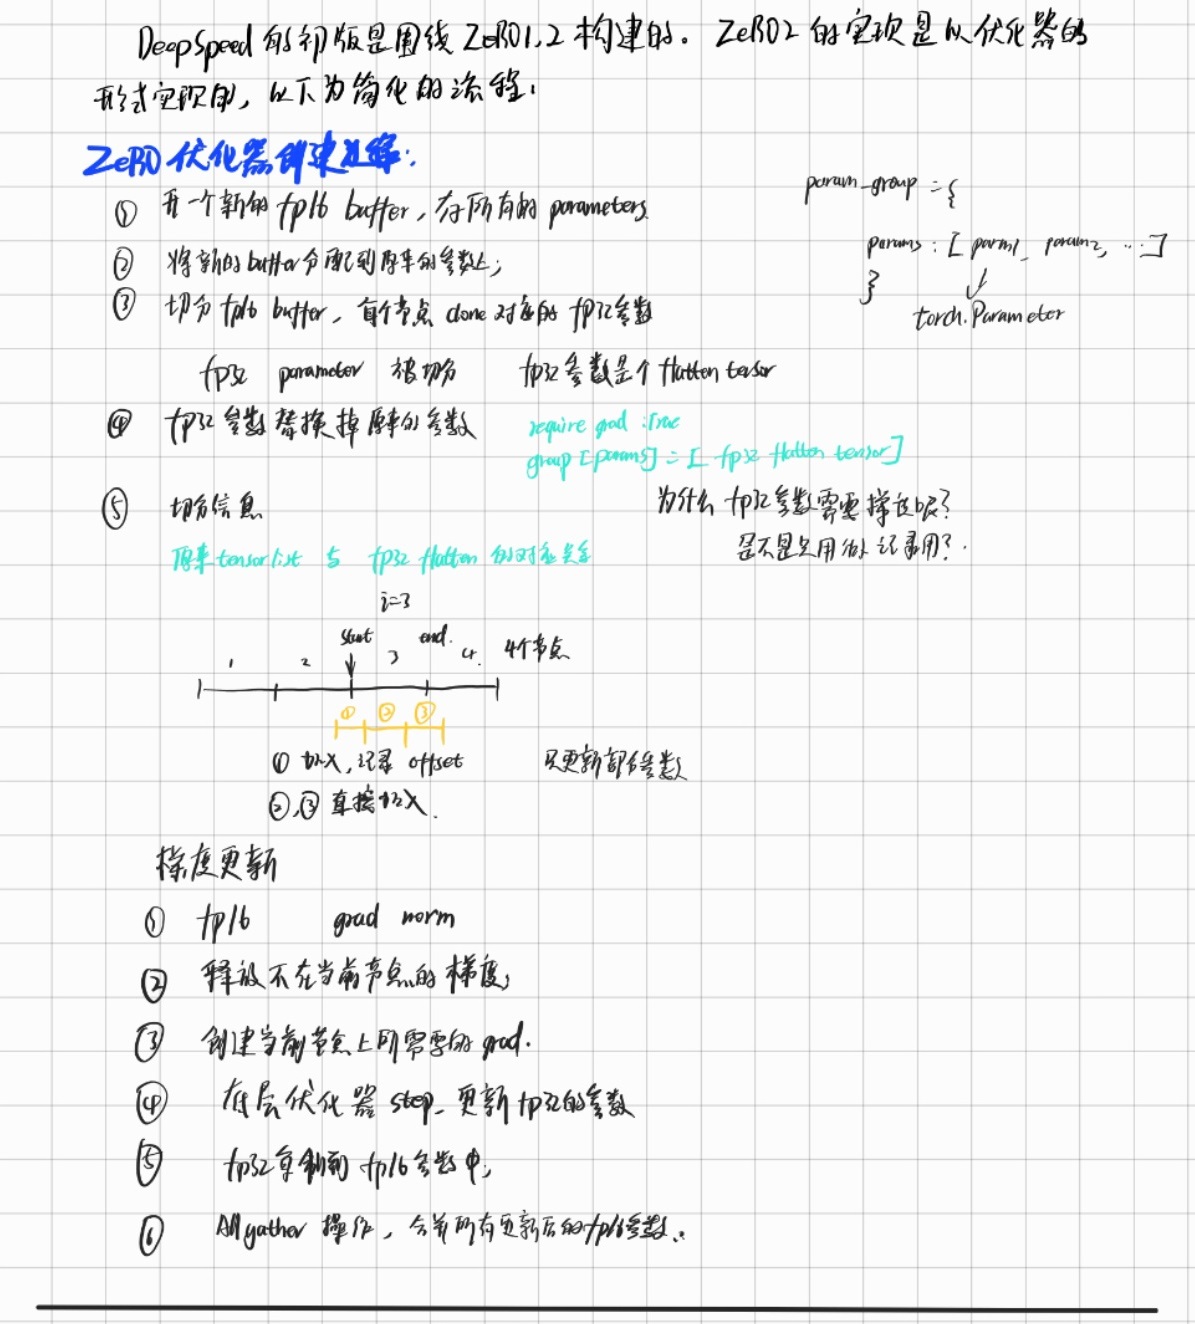 DeepSpeed 的初版是围绕 ZeRO1,2 构建的。 ZeRO2 的实现是以优化器的
形式实现的, 以下为简化的流程:
ZeRO 优化器创建过程:
① 开一个新的 fp16 buffer, 存所有的 parameters
② 将新的buffer分配到原来的参数上;
③ 切分 fp16 buffer, 每个节点 clone 对应的 fp32参数
fp32 parameter 被切分 fp32 参数是个 flatten tensor
param_group = {
params : [ parm1, param2, ...]
}
torch.Parameter
④ fp32 参数替换掉原来的参数
require grad :True
group [params] = [ fp32 flatten tensor]
⑤ 切分信息
为什么 fp32参数需要 梯度呢?
是不是只用做 记录用?
原来tensorlist 与 fp32 flatten 的对应关系
i=3
start end.
1 2 3 4. 4个节点
① ② ③
① 切入,记录 offset 只更新部分参数
②,③ 直接切入.
梯度更新
① fp16 grad norm
② 释放不在当前节点的 梯度;
③ 创建当前节点上所需要的 grad.
④ 底层优化器 step. 更新 fp32的参数
⑤ fp32复制到 fp16参数中;
⑥ All gather 操作, 合并所有更新后的fp16参数.